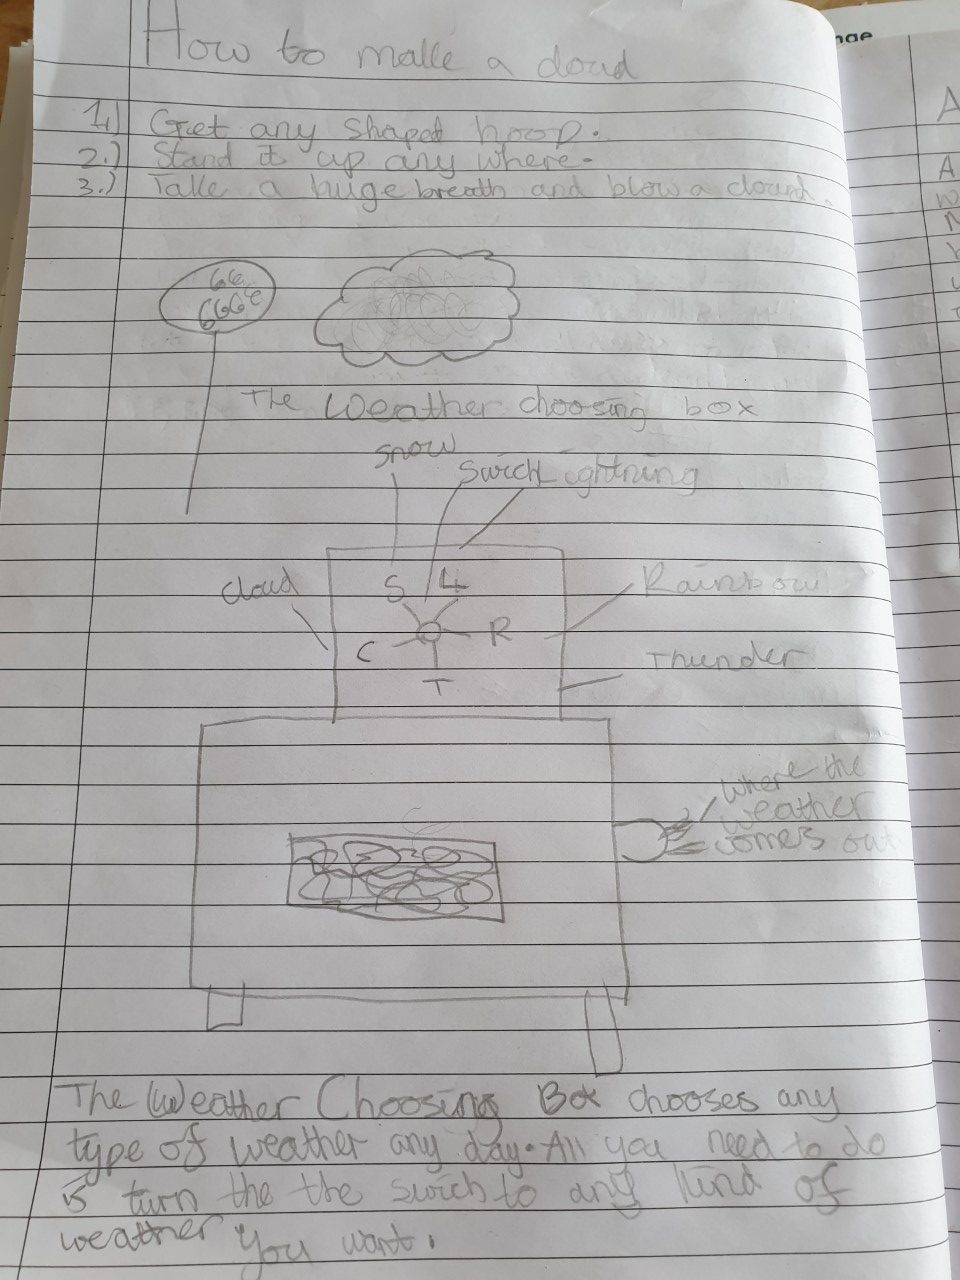 How to make a cloud
1.) Get any shaped hoop.
2.) Stand it up any where.
3.) Take a huge breath and blow a cloud.
The Weather choosing box
snow
Swich Lightning
Cloud
S L
Rainbow
C R
T
Thunder
Where the
weather
comes out
The Weather Choosing Box chooses any
type of weather any day. All you need to do
is turn the the swich to any kind of
weather you want.
nae
A
A